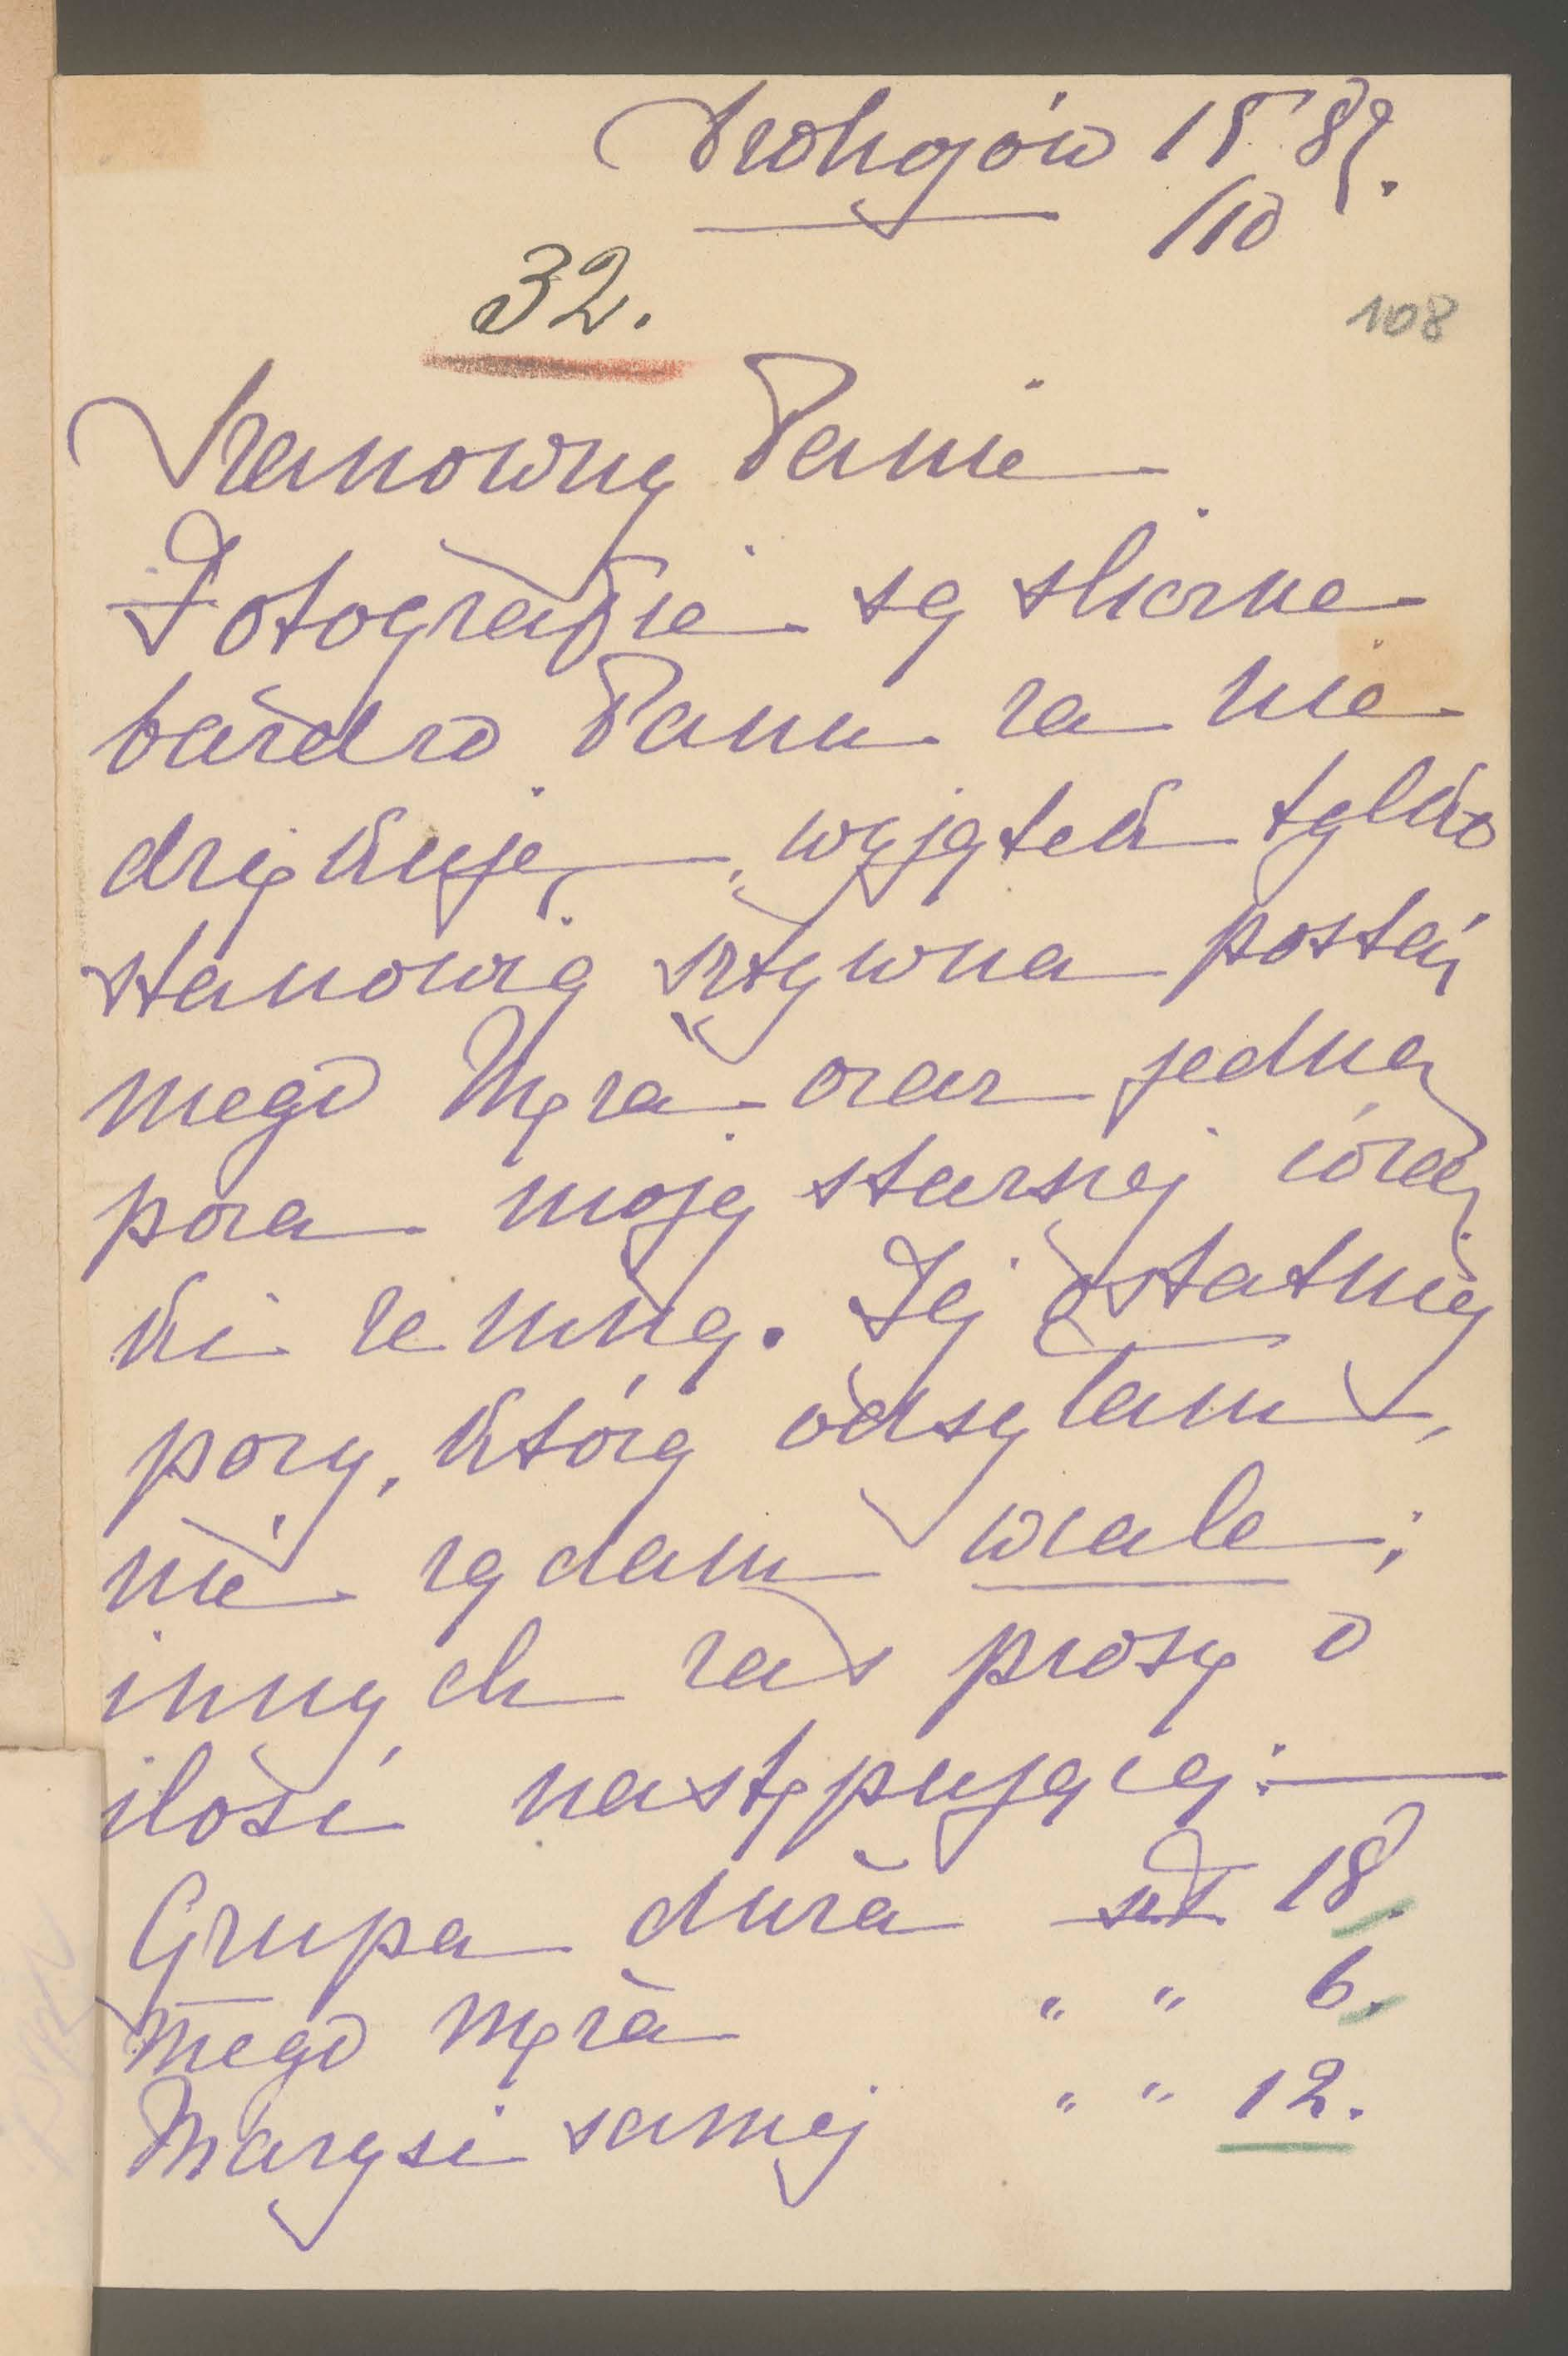 Drohojów 15 89.
/10
32.
108
Szanowny Panie
Fotografie są śliczne
bardzo Panu za nie
dziękuję, wyjątek tylko
stanowią sztywna postać
mego Męża oraz jedna
poza mojej starszej córecz
ki ze mną. Tej ostatniej
pozy, którą odsyłam,
nie żądam wcale;
innych zaś proszę o
ilość następującej:
Grupa duża szt 18.
Mego Męża " " 6.
Marysi samej " " 12.